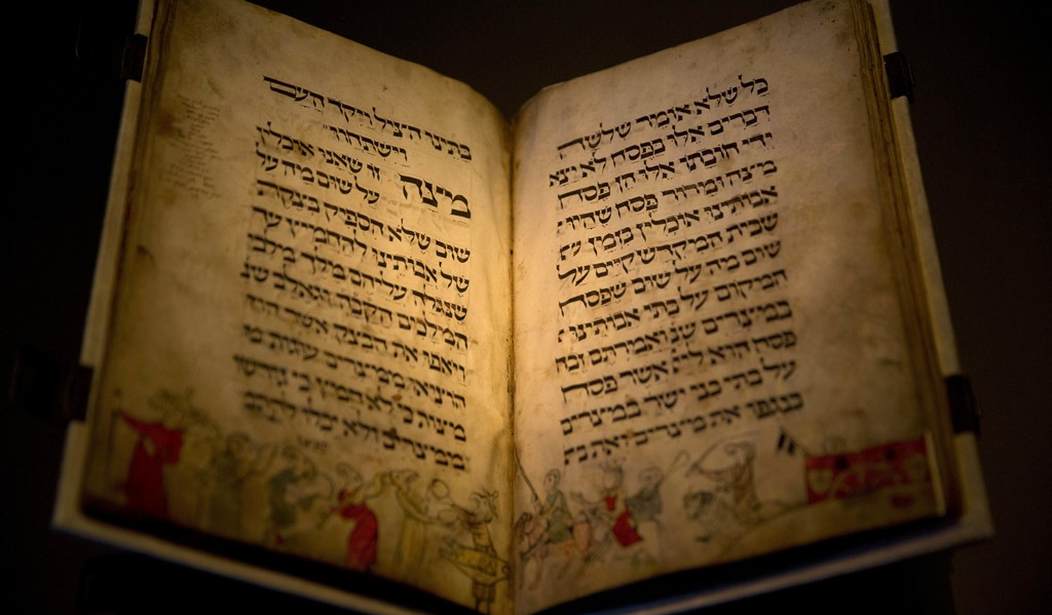 כל שלא אומר שלשה
דברים אלו בפסח לא יצא
ידי חובתו אלו הן פסח
מצה ומרור פסח שהיו
אבותינו אוכלין בזמן
שבית המקדש קיים על
שום מה על שום שפסח
המקום על בתי אבותינו
במצרים שנ ואמרתם זבח
פסח הוא ליי אשר פסח
על בתי בני ישר במצרים
בנגפו את מצרים ואת בת
בתינו הציל ויקד העם
וישתחוו
מצה זו שאנו אוכלין
על שום מה על
שום שלא הספיק בצקת
של אבותינו להחמיץ עד
שנגלה עליהם מלך מלכי
המלכים הקבה וגאלם שנ
ויאפו את הבצק אשר הוצ
הוציאו ממצרים עוגות מ
מצות כי לא חמץ כי גורשו
ממצרים ולא יכלו